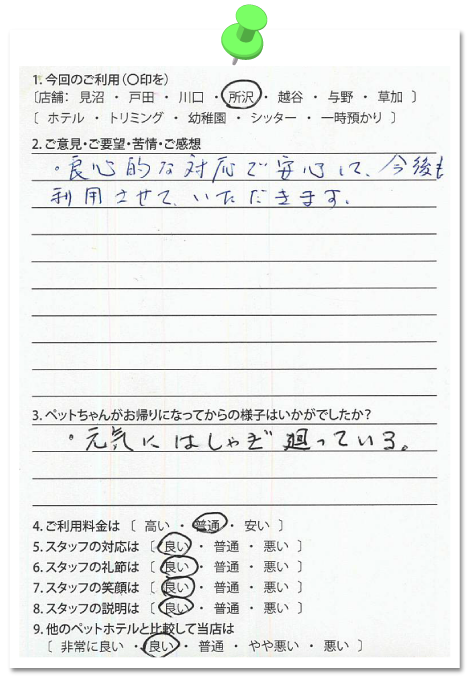 1. 今回のご利用(〇印を)
〔店舗: 見沼 ・ 戸田 ・ 川口 ・ 所沢 ・ 越谷 ・ 与野 ・ 草加 〕
〔 ホテル ・ トリミング ・ 幼稚園 ・ シッター ・ 一時預かり 〕
2. ご意見・ご要望・苦情・ご感想
・良心的な対応で安心して、今後も
利用させて、いただきます。
3. ペットちゃんがお帰りになってからの様子はいかがでしたか?
・元気にはしゃぎ廻っている。
4. ご利用料金は 〔 高い ・ 普通 ・ 安い 〕
5. スタッフの対応は 〔 良い ・ 普通 ・ 悪い 〕
6. スタッフの礼節は 〔 良い ・ 普通 ・ 悪い 〕
7. スタッフの笑顔は 〔 良い ・ 普通 ・ 悪い 〕
8. スタッフの説明は 〔 良い ・ 普通 ・ 悪い 〕
9. 他のペットホテルと比較して当店は
〔 非常に良い ・ 良い ・ 普通 ・ やや悪い ・ 悪い 〕